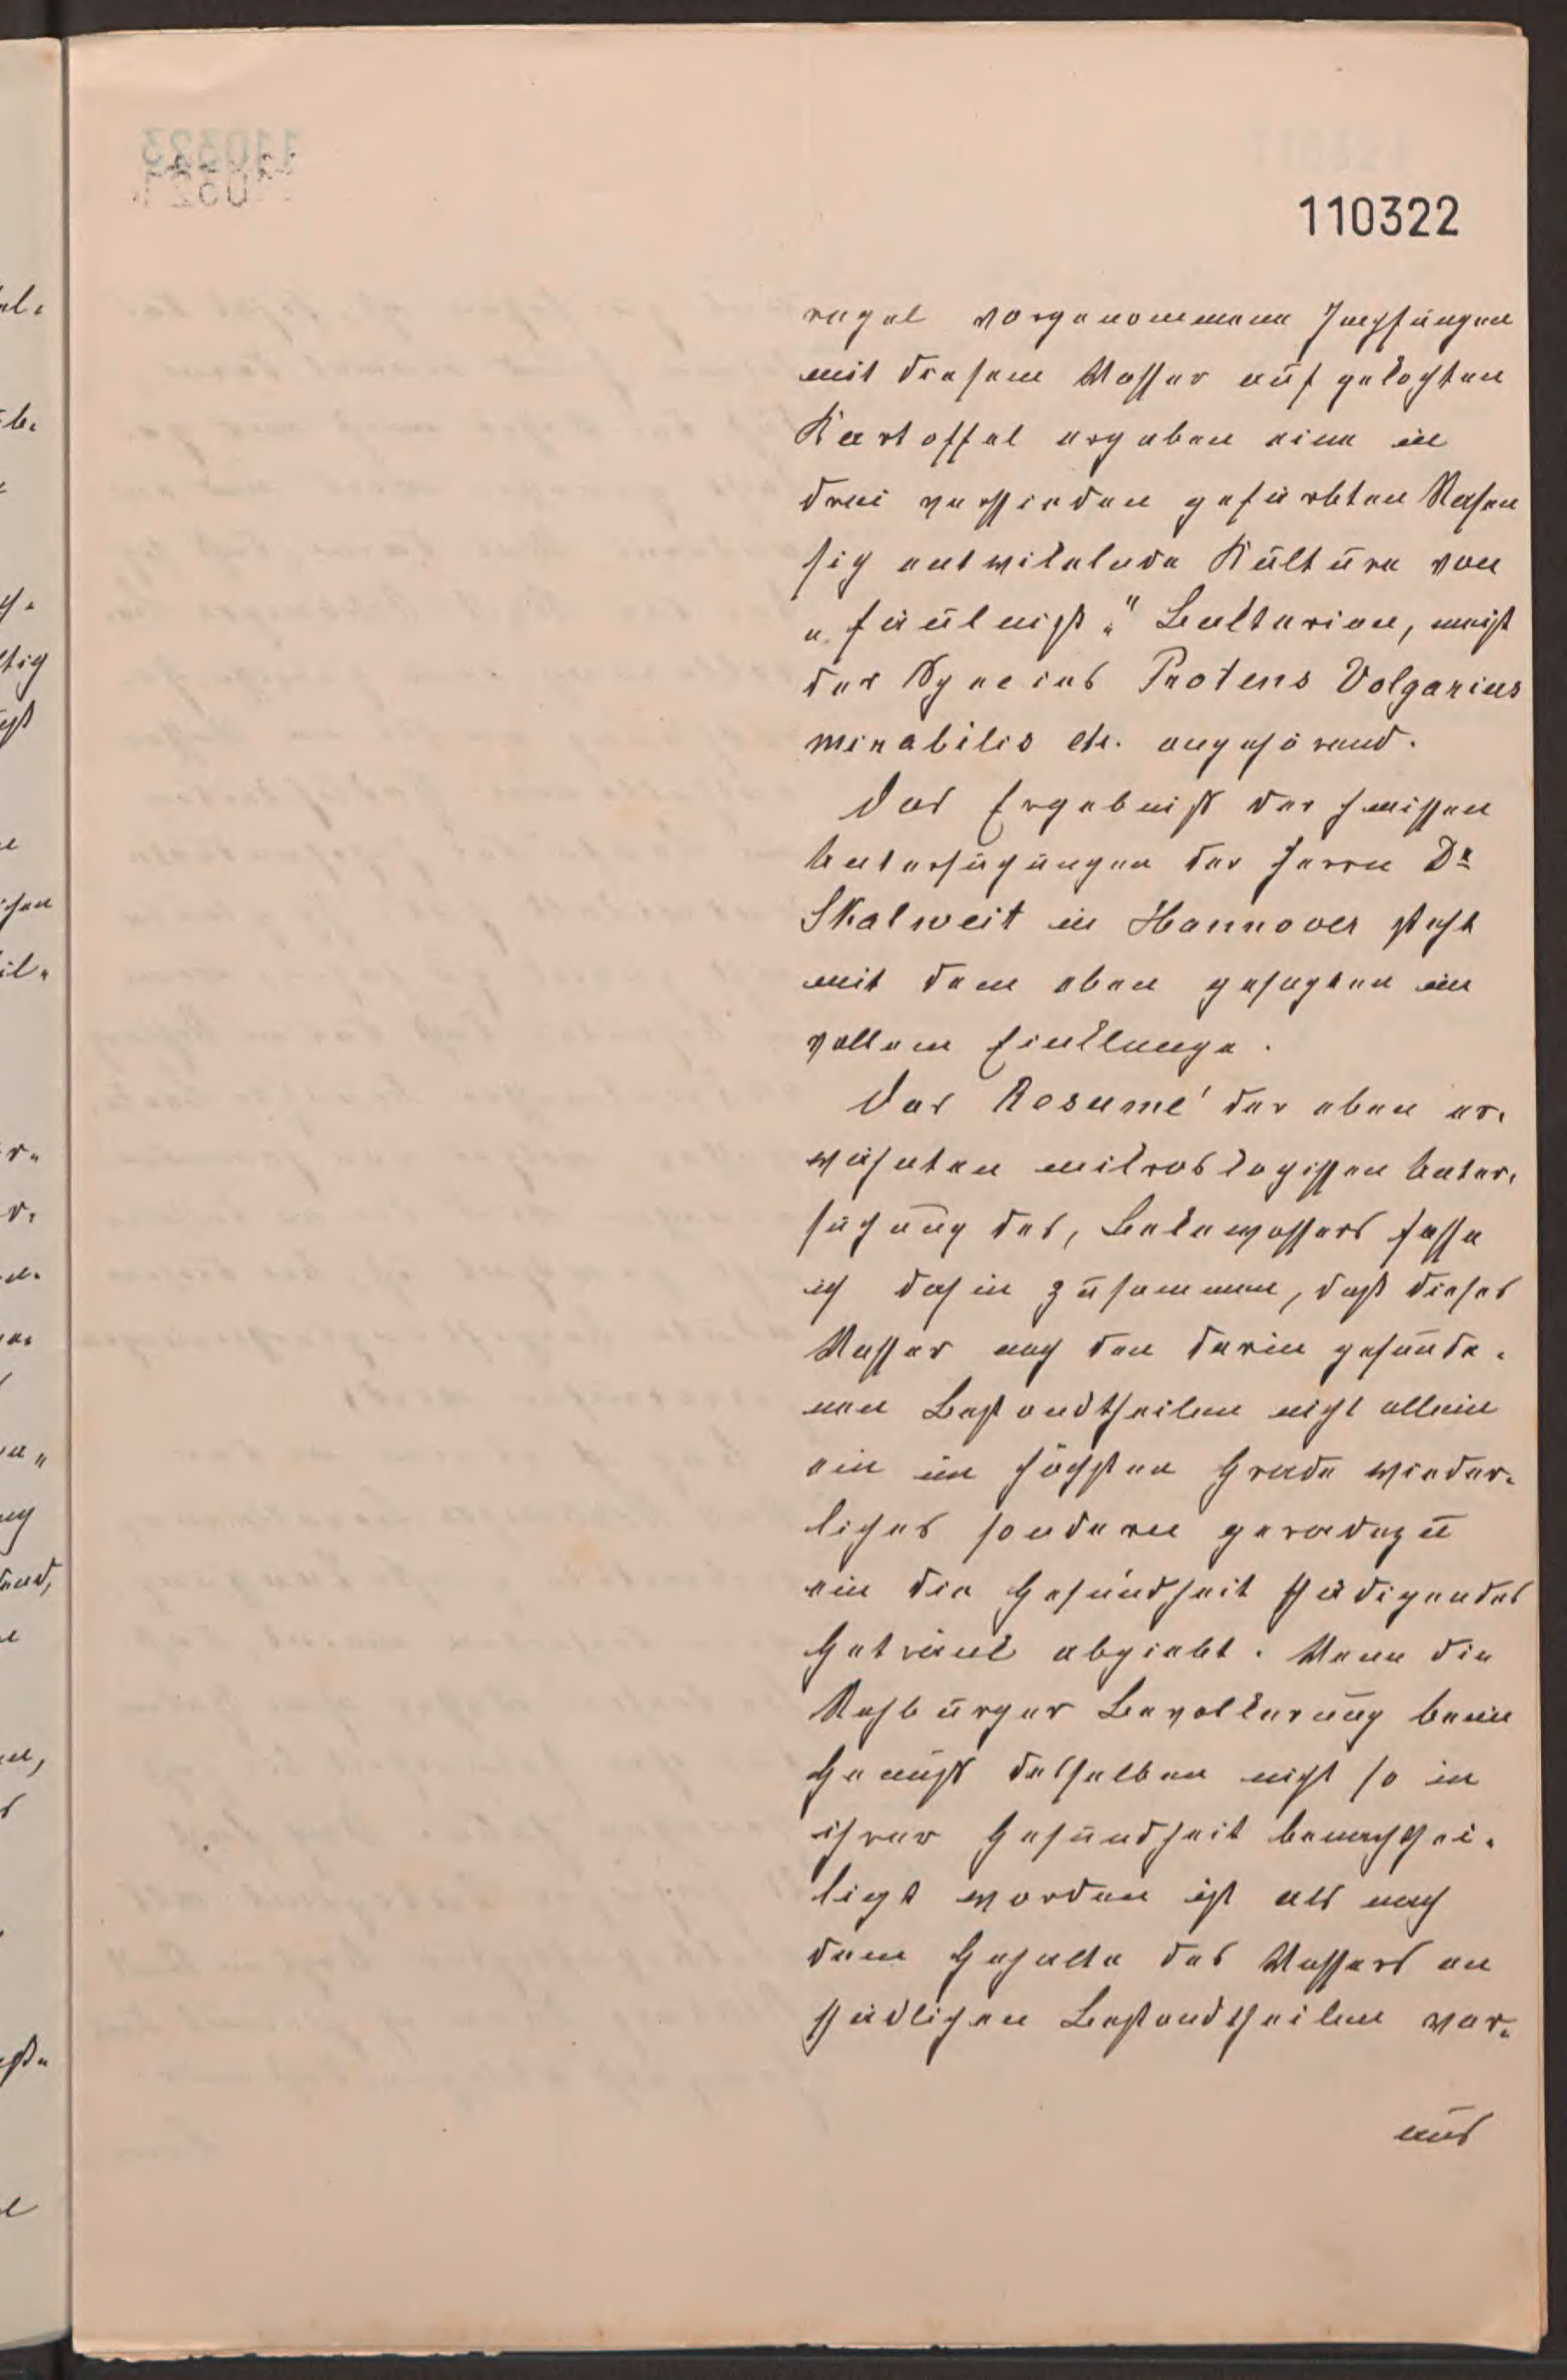 110322
regel vorgenommene Impfungen
mit diesem Wasser auf gekochten
Kartoffel ergaben eine in
drei verschieden gefärbten Rasen
sich entwikelnde Kulture von
„Fäulnisß„" Bakterien, meist
der Species Protens Volgarius
mirabilis etc. angehörend.
Das Ergebniß der chemischen
Untersuchungen der Herrn Dr
Skalweit in Hannover steht
mit dem oben gesagten im
vollem Einklange.
Das Resumé der oben er-
wähnten mikroskogischen Unter-
suchung des, Bekewassers fasse
ich dahin zusammen, daß dieses
Wasser nach den darin gefunde-
nen Bestandtheilen nicht allein
ein im höchsten Grade wieder-
liches sondern geradezu
ein die Gesundheit schädigendes
Getränk abgiebt. Wenn die
Rehburger Bevolkerung beim
Genuß desselben nicht so in
ihrer Gesundheit benachthei-
ligt worden ist als nach
dem Gehalte des Wassers an
schädlichen Bestandtheilen vor-
aus